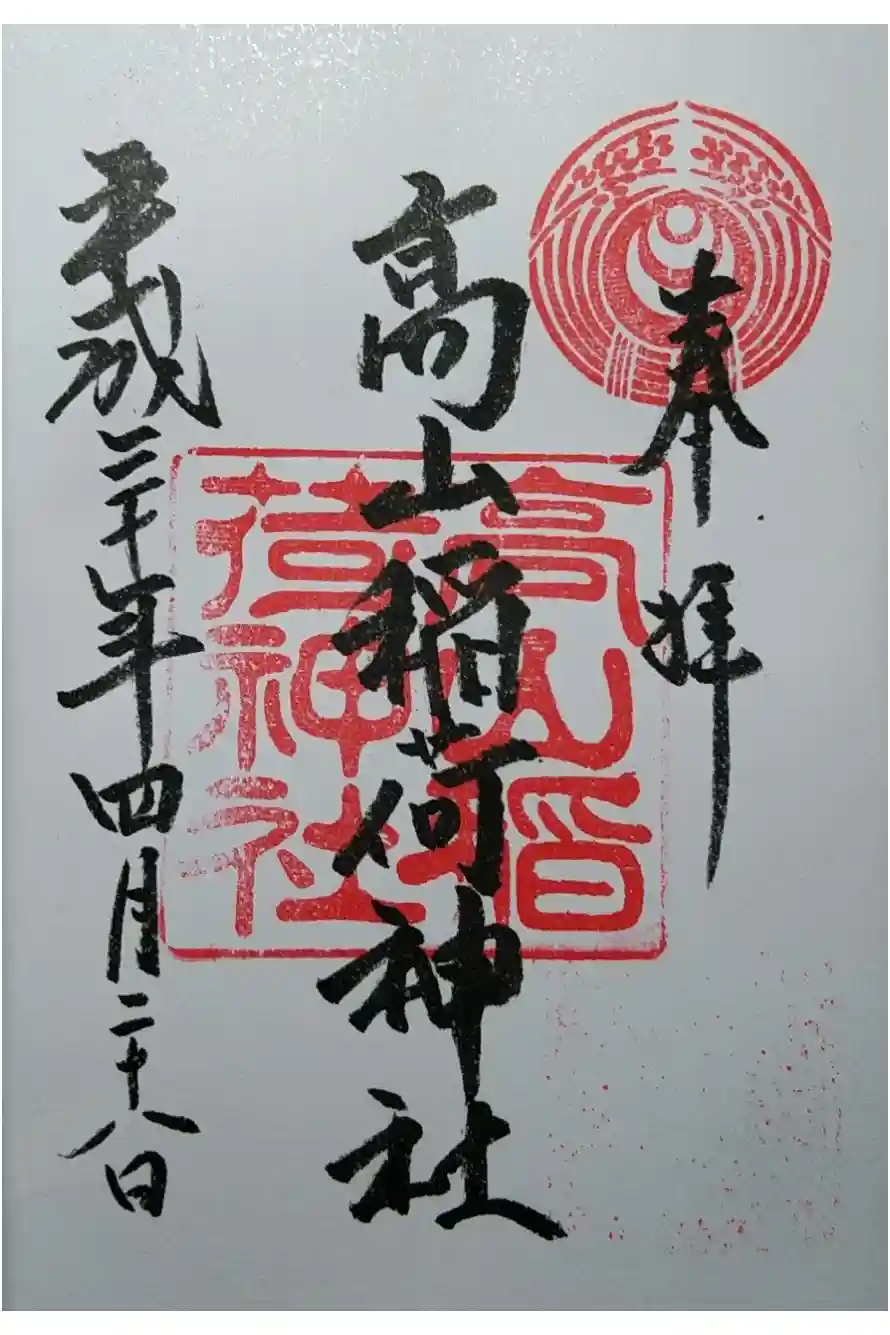 奉拝
高山稲荷神社
平成三十年四月二十八日
高山稲
荷神社